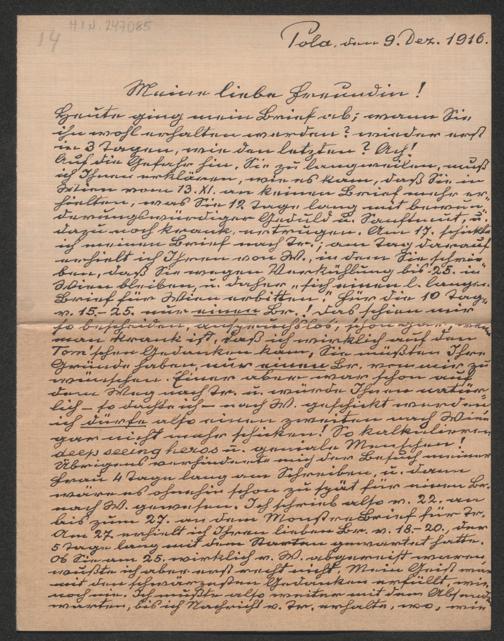 14
H.I.N. 247085
Pola, den 9. Dez. 1916.
Meine liebe Freundin!
Heute ging mein Brief ab; wann Sie
ihn wohl erhalten werden? wieder erst
in 3 Tagen, wie den letzten? Ach!
Auf die Gefahr hin, Sie zu langweilen, muß
ich Ihnen erklären, wie es kam, daß Sie in
Wien vom 13. XI. an keinen Brief mehr er-
hielten, was Sie 12 Tage lang mit bewun-
derungswürdiger Geduld u. Sanftmut, u.
dazu noch krank, ertrugen. Am 17. schickte
ich meinen Brief nach Tr.; am Tag darauf
erhielt ich Ihren von W., in dem Sie schrie-
ben, daß Sie wegen Verkühlung bis 25. in
Wien bleiben, u. daher „sich einen l. langen
Brief für Wien erbitten". Für die 10 Tage
v. 15.-25. nur einen Br.! das schien mir
so bescheiden, anspruchslos, schon gar, wenn
man krank ist, daß ich wirklich auf den
Tom'schen Gedanken kam, Sie müßten Ihre
Gründe haben, nur einen Br. von mir zu
wünschen. Einer aber war schon auf
dem Weg nach Tr. u. würde Ihnen natür-
lich – so dachte ich – nach W. geschickt werden –
ich dürfe also einen zweiten nach Wien
gar nicht mehr schicken! So kalkulieren
deep seeing heros u. geniale Menschen!
Übrigens verhinderte mich der Besuch meiner
Frau 4 Tage lang am Schreiben, u. dann
wäre es ohnehin schon zu spät für einen Br.
nach W. gewesen. Ich schrieb also v. 22. an
bis zum 27. an dem Monstre Brief für Tr.
Am 27. erhielt ich Ihren lieben Br. v. 18.-20. der
5 Tage lang mit dem Starten gewartet hatte.
Ob Sie am 25. wirklich v. W. abgereist waren,
wußte ich aber erst recht nicht. Mein Geist war
mit den schwärzesten Gedanken erfüllt, wie
noch nie. Ich mußte also weiter mit dem Absenden
warten, bis ich Nachricht v. Tr. erhalte, wo, wie